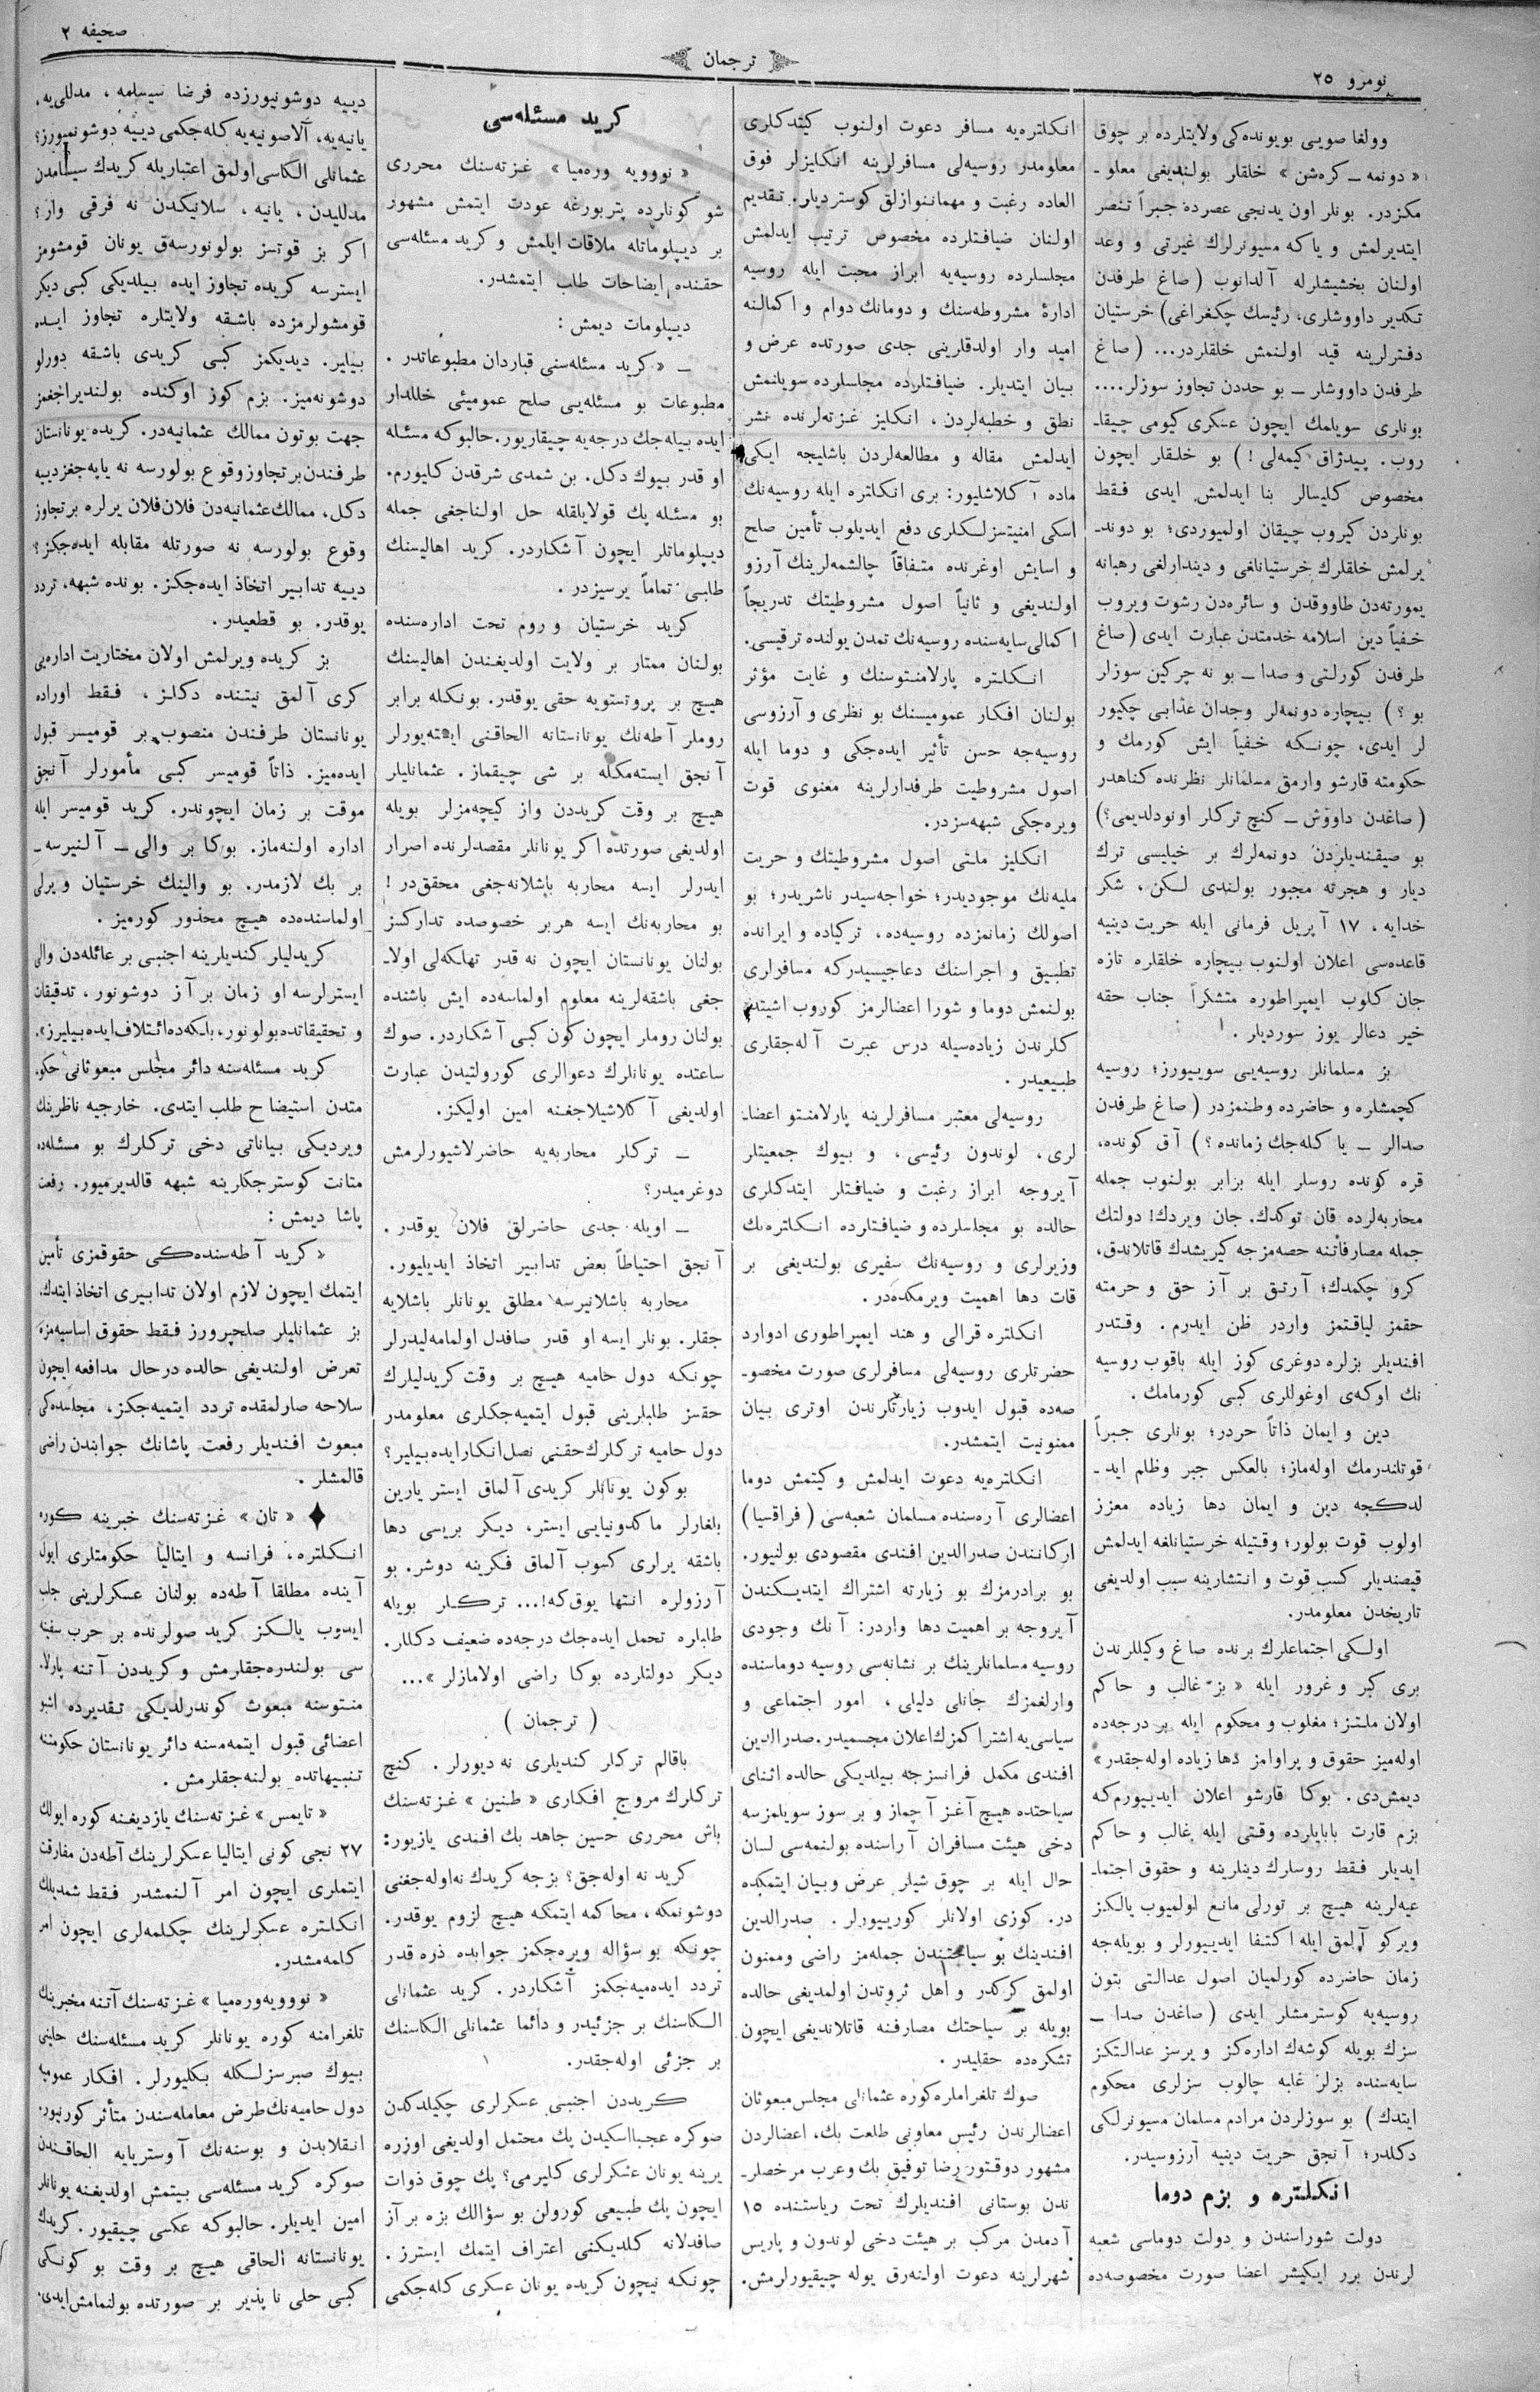 نومرو ٢٥
ترجمان
صحيفه ٢
وولغا صويى بويونده‌كى ولايتلرده بر چوق
« دونمه ـ كره‌شن » خلقلر بولنديغى معلو ـ
مكزدر. بونلر اون يدنجى عصرده جبراً تنصر
ايتديرلمش و ياكه مسيونرلرك غيرتى و وعد
اولنان بخشيشلرله آلدانوب ( صاغ طرفدن
تكدير داووشلرى، رئيسك چكغراغى) خرستيان
دفترلرينه قيد اولنمش خلقلردر... ( صاغ
طرفدن داووشلر ـ بو حددن تجاوز سوزلر....
بونلرى سويلمك ايچون عسكرى كيومى چيقاـ
روب. پيدژاق كيمه‌لى ! ) بو خلقلر ايچون
مخصوص كليسالر بنا ايدلمش ايدى فقط
بونلردن كيروب چيقان اولميوردى؛ بو دوندـ
يرلمش خلقلرك خرستيانلغى و ديندارلغى رهبانه
يمورته‌دن طاووقدن و سائره‌دن رشوت ويروب
خفياً دين اسلامه خدمتدن عبارت ايدى ( صاغ
طرفدن كورلتى و صدا ـ بو نه چركين سوزلر
بو ؟ ) بيچاره دونمه‌لر وجدان عذابى چكيور
لر ايدى، چونكه خفياً ايش كورمك و
حكومته قارشو وارمق مسلمانلر نظرنده كناهدر
( صاغدن داووش ـ كنج تركلر اونودلديمى؟)
بو صيقنديلردن دونمه‌لرك بر خيليسى ترك
ديار و هجرته مجبور بولندى لكن، شكر
خدايه، ١٧ آپريل فرمانى ايله حريت دينيه
قاعده‌سى اعلان اولنوب بيچاره خلقلره تازه
جان كلوب ايمپراطوره متشكراً جناب حقه
خير دعالر يوز سورديلر .
بز مسلمانلر روسيه‌يى سوييورز؛ روسيه
كچمشلره و حاضرده وطنمزدر ( صاغ طرفدن
صدالر ـ يا كله‌جك زمانده ؟ ) آق كونده،
قره كونده روسلر ايله برابر بولنوب جمله
محاربه‌لرده قان توكدك. جان ويردك! دولتك
جمله مصارفاتنه حصه‌مزجه كيريشدك قاتلاندق،
كرو چكمدك؛ آرتق بر آز حق و حرمته
حقمز لياقتمز واردر ظن ايدرم. وقتدر
افنديلر بزلره دوغرى كوز ايله باقوب روسيه
نك اوكه‌ى اوغوللرى كبى كورمامك .
دين و ايمان ذاتاً حردر؛ بونلرى جبراً
قوتلندرمك اوله‌ماز؛ بالعكس جبر وظلم ايد ـ
لدكجه دين و ايمان دها زياده معزز
اولوب قوت بولور؛ وقتيله خرستيانلغه ايدلمش
قيصنديلر كسب قوت و انتشارينه سبب اولديغى
تاريخدن معلومدر.
اولكى اجتماعلرك برنده صاغ وكيللرندن
برى كبر و غرور ايله « بز غالب و حاكم
اولان ملتز؛ مغلوب و محكوم ايله بر درجه‌ده
اوله‌ميز حقوق و پراوامز دها زياده اوله‌جقدر»
ديمش‌دى. بوكا قارشو اعلان ايدييورم‌كه
بزم قارت بابايلرده وقتى ايله غالب و حاكم
ايديلر فقط روسلرك دينلرينه و حقوق اجتماـ
عيه‌لرينه هيچ بر تورلى مانع اولميوب يالكز
ويركو آلمق ايله اكتفا ايدييورلر و بويله‌جه
زمان حاضرده كورلميان اصول عدالتى بتون
روسيه‌يه كوسترمشلر ايدى ( صاغدن صدا ـ
سزك بويله كوشك اداره‌كز و يرسز عدالتكز
سايه‌سنده بزلر غلبه چالوب سزلرى محكوم
ايتدك ) بو سوزلردن مرادم مسلمان مسيونرلكى
دكلدر؛ آنجق حريت دينيه آرزوسيدر.
انكلتره و بزم دوما
دولت شوراسندن و دولت دوماسى شعبه
لرندن برر ايكيشر اعضا صورت مخصوصه‌ده
انكلتره‌يه مسافر دعوت اولنوب كيتدكلرى
معلومدر روسيه‌لى مسافرلرينه انكليزلر فوق
العاده رغبت و مهماننوازلق كوسترديلر. تقديم
اولنان ضيافتلرده مخصوص ترتيب ايدلمش
مجلسلرده روسيه‌يه ابراز محبت ايله روسيه
ادارهٔ مشروطه‌سنك و دومانك دوام و اكمالنه
اميد وار اولدقلرينى جدى صورتده عرض و
بيان ايتديلر. ضيافتلرده مجلسلرده سويلنمش
نطق و خطبه‌لردن، انكليز غزته‌لرنده نشر
ايدلمش مقاله و مطالعه‌لردن باشليجه ايكى
ماده آكلاشليور: برى انكلتره ايله روسيه‌نك
اسكى امنيتسزلكلرى دفع ايديلوب تأمين صلح
و اسايش اوغرنده متفاقاً چالشمه‌لرينك آرزو
اولنديغى و ثانياً اصول مشروطيتك تدريجاً
اكمالى سايه‌سنده روسيه‌نك تمدن يولنده ترقيسى.
انكلتره پارلامنتوسنك و غايت مؤثر
بولنان افكار عموميسنك بو نظرى و آرزوسى
روسيه‌جه حسن تأثير ايده‌جكى و دوما ايله
اصول مشروطيت طرفدارلرينه معنوى قوت
ويره‌جكى شبهه‌سزدر.
انكليز ملتى اصول مشروطيتك و حريت
مليه‌نك موجوديدر؛ خواجه‌سيدر ناشريدر؛ بو
اصولك زمانمزده روسيه‌ده، تركياده و ايرانده
تطبيق و اجراسنك دعاجيسيدركه مسافرلرى
بولنمش دوما و شورا اعضالرمز كوروب اشيتدـ
كلرندن زياده‌سيله درس عبرت آله‌جقلرى
طبيعيدر.
روسيه‌لى معتبر مسافرلرينه پارلامنتو اعضاـ
لرى، لوندون رئيسى، و بيوك جمعيتلر
آيروجه ابراز رغبت و ضيافتلر ايتدكلرى
حالده بو مجلسلرده و ضيافتلرده انكلتره‌نك
وزيرلرى و روسيه‌نك سفيرى بولنديغى بر
قات دها اهميت ويرمكده‌در.
انكلتره قرالى و هند ايمپراطورى ادوارد
حضرتلرى روسيه‌لى مسافرلرى صورت مخصوـ
صه‌ده قبول ايدوب زيارتلرندن اوترى بيان
ممنونيت ايتمشدر.
انكلتره‌يه دعوت ايدلمش و كيتمش دوما
اعضالرى آره‌سنده مسلمان شعبه‌سى ( فراقسيا)
اركانندن صدرالدين افندى مقصودى بولنيور.
بو برادرمزك بو زيارته اشتراك ايتديكندن
آيروجه بر اهميت دها واردر: آنك وجودى
روسيه مسلمانلرينك بر نشانه‌سى روسيه دوماسنده
وارلغمزك جانلى دليلى، امور اجتماعى و
سياسى‌يه اشتراكمزك اعلان مجسميدر. صدرالدين
افندى مكمل فرانسزجه بيلديكى حالده اثناى
سياحتده هيچ آغز آچماز و بر سوز سويلمزسه
دخى هيئت مسافران آراسنده بولنمه‌سى لسان
حال ايله بر چوق شيلر عرض وبيان ايتمكده
در. كوزى اولانلر كورييورلر. صدرالدين
افندينك بو سياحتندن جمله‌مز راضى وممنون
اولمق كركدر و اهل ثروتدن اولمديغى حالده
بويله بر سياحتك مصارفنه قاتلانديغى ايچون
تشكره‌ده حقليدر.
صوك تلغراملره كوره عثمانلى مجلس مبعوثان
اعضالرندن رئيس معاونى طلعت بك، اعضالردن
مشهور دوقتور رضا توفيق بك وعرب مرخصلرـ
ندن بوستانى افنديلرك تحت رياستنده ١٥
آدمدن مركب بر هيئت دخى لوندون و پاريس
شهرلرينه دعوت اولنه‌رق يوله چيقيورلرمش.
كريد مسئله‌سى
« نوويه وره‌ميا » غزته‌سنك محررى
شو كونلرده پتربورغه عودت ايتمش مشهور
بر ديپلوماتله ملاقات ايلمش و كريد مسئله‌سى
حقنده ايضاحات طلب ايتمشدر.
ديپلومات ديمش :
ـ « كريد مسئله‌سنى قباردان مطبوعاتدر.
مطبوعات بو مسئله‌يى صلح عموميئى خللدار
ايده بيله‌جك درجه‌يه چيقاريور. حالبوكه مسئله
او قدر بيوك دكل. بن شمدى شرقدن كليورم.
بو مسئله پك قولايلقله حل اولناجغى جمله
ديپلوماتلر ايچون آشكاردر. كريد اهاليسنك
طلبى تماماً يرسيزدر.
كريد خرستيان وروم تحت اداره‌سنده
بولنان ممتاز بر ولايت اولديغندن اهاليسنك
هيچ بر پروتستويه حقى يوقدر. بونكله برابر
روملر آطه‌نك يونانستانه الحاقنى ايسته‌يورلر
آنجق ايسته‌مكله بر شى چيقماز. عثمانليلر
هيچ بر وقت كريددن واز كيچه‌مزلر بويله
اولديغى صورتده اكر يونانلر مقصدلرنده اصرار
ايدرلر ايسه محاربه باشلانه‌جغى محقق‌در !
بو محاربه‌نك ايسه هربر خصوصده تداركسز
بولنان يونانستان ايچون نه قدر تهلكه‌لى اولاـ
جغى باشقه‌لرينه معلوم اولماسه‌ده ايش باشنده
بولنان روملر ايچون كون كبى آشكاردر. صوك
ساعتده يونانلرك دعوالرى كورولتيدن عبارت
اولديغى آكلاشيلاجغنه امين اوليكز.
ـ تركلر محاربه‌يه حاضرلاشيورلرمش
دوغرميدر؟
ـ اويله جدى حاضرلق فلان يوقدر.
آنجق احتياطاً بعض تدابير اتخاذ ايديليور.
محاربه باشلانيرسه مطلق يونانلر باشلايه
جقلر. بونلر ايسه او قدر صافدل اولمامه‌ليدرلر
چونكه دول حاميه هيچ بر وقت كريدليلرك
حقسز طلبلرينى قبول ايتميه‌جكلرى معلومدر
دول حاميه تركلرك حقنى نصل انكار ايده‌بيلير؟
بوكون يونانلر كريدى آلماق ايستر يارين
بلغارلر ماكدونيايى ايستر، ديكر بريسى دها
باشقه يرلرى كسوب آلماق فكرينه دوشر. بو
آرزولره انتها يوق‌كه!... تركلر بويله
طلبلره تحمل ايده‌جك درجه‌ده ضعيف دكللر.
ديكر دولتلرده بوكا راضى اولامازلر »...
( ترجمان )
باقالم تركلر كنديلرى نه ديورلر. كنج
تركلرك مروج افكارى « طنين » غزته‌سنك
باش محررى حسين جاهد بك افندى يازيور:
كريد نه اوله‌جق؟ بزجه كريدك نه‌اوله‌جغنى
دوشونمكه، محاكمه ايتمكه هيچ لزوم يوقدر.
چونكه بو سؤاله ويره‌جكمز جوابده ذره قدر
تردد ايده‌ميه‌جكمز آشكاردر. كريد عثمانلى
الكاسنك بر جزئيدر و دائما عثمانلى الكاسنك
بر جزئى اوله‌جقدر.
كريددن اجنبى عسكرلرى چكيلدكدن
صوكره عجبا اسكيدن پك محتمل اولديغى اوزره
يرينه يونان عسكرلرى كليرمى؟ پك چوق ذوات
ايچون پك طبيعى كورولن بو سؤالك بزه بر آز
صافدلانه كلديكنى اعتراف ايتمك ايسترز.
چونكه نيچون كريده يونان عسكرى كله‌جكمى
دييه دوشونيورزده فرضا سيسامه، مدللى‌يه،
يانيه‌يه، آلاصونيه‌يه كله‌جكمى دييه دوشونميورز؟
عثمانلى الكاسى اولمق اعتباريله كريدك سيسامدن
مدلليدن، يانيه، سلانيكدن نه فرقى وار؟
اكر بز قوتسز بولونورسه‌ق يونان قومشومز
ايسترسه كريده تجاوز ايده بيلديكى كبى ديكر
قومشولرمزده باشقه ولايتلره تجاوز ايده
بيلير. ديديكمز كبى كريدى باشقه دورلو
دوشونه‌ميز. بزم كوز اوكنده بولنديراجغمز
جهت بوتون ممالك عثمانيه‌در. كريده يونانستان
طرفندن بر تجاوز وقوع بولورسه نه ياپه‌جغز دييه
دكل، ممالك عثمانيه‌دن فلان فلان يرلره بر تجاوز
وقوع بولورسه نه صورتله مقابله ايده‌جكز؟
دييه تدابير اتخاذ ايده‌جكز. بونده شبهه، تردد
يوقدر. بو قطعيدر.
بز كريده ويرلمش اولان مختاريت اداره‌يى
كرى آلمق نيتنده دكلز، فقط اوراده
يونانستان طرفندن منصوب بر قوميسر قبول
ايده‌ميز. ذاتاً قوميسر كبى مأمورلر آنجق
موقت بر زمان ايچوندر. كريد قوميسر ايله
اداره اولنه‌ماز. بوكا بر والى ـ آلنيرسه ـ
بر بك لازمدر. بو والينك خرستيان ويرلى
اولماسنده‌ده هيچ محذور كورميز.
كريدليلر كنديلرينه اجنبى بر عائله‌دن والى
ايسترلرسه او زمان بر آز دوشونور، تدقيقات
و تحقيقاتده بولونور، بلكه‌ده ائتلاف ايده بيليرز».
كريد مسئله‌سنه دائر مجلس مبعوثانى حكو.
متدن استيضاح طلب ايتدى. خارجيه ناظرينك
ويرديكى بياناتى دخى تركلرك بو مسئله‌ده
متانت كوسترجكلرينه شبهه قالديرميور. رفعت
پاشا ديمش :
« كريد آطه‌سنده‌كى حقوقمزى تأمين
ايتمك ايچون لازم اولان تدابيرى اتخاذ ايتدك.
بز عثمانليلر صلحپرورز فقط حقوق اساسيه‌مزه
تعرض اولنديغى حالده درحال مدافعه ايچون
سلاحه صارلمقده تردد ايتميه‌جكز، مجلسده‌كى
مبعوث افنديلر رفعت پاشانك جوابندن راضى
قالمشلر.
♦ « تان » غزته‌سنك خبرينه كوره
انكلتره، فرانسه و ايتاليا حكومتلرى ايول
آينده مطلقا آطه‌ده بولنان عسكرلرينى جلب
ايدوب يالكز كريد صولرنده بر حرب سفينه
سى بولندره‌جقلرمش و كريددن آتنه پارلا.
منتوسنه مبعوث كوندرلديكى تقديرده اشبو
اعضائى قبول ايتمه‌مسنه دائر يونانستان حكومتنه
تنبيهاتده بولنه‌جقلرمش.
« تايمس » غزته‌سنك يازديغنه كوره ايولك
٢٧ نجى كونى ايتاليا عسكرلرينك آطه‌دن مفارقت
ايتملرى ايچون امر آلنمشدر فقط شمديلك
انكلتره عسكرلرينك چكلمه‌لرى ايچون امر
كلمه‌مشدر.
« نوويه‌وره‌ميا » غزته‌سنك آتنه مخبرينك
تلغرامنه كوره يونانلر كريد مسئله‌سنك حلينى
بيوك صبرسزلكله بكليورلر. افكار عموميه
دول حاميه‌نك طرض معامله‌سندن متأثر كورنيور.
انقلابدن و بوسنه‌نك آوستريايه الحاقندن
صوكره كريد مسئله‌سى بيتمش اولديغنه يونانلر
امين ايديلر. حالبوكه عكسى چيقيور. كريدك
يونانستانه الحاقى هيچ بر وقت بو كونكى
كبى حلى ناپذير بر صورتده بولنمامش ايدى.